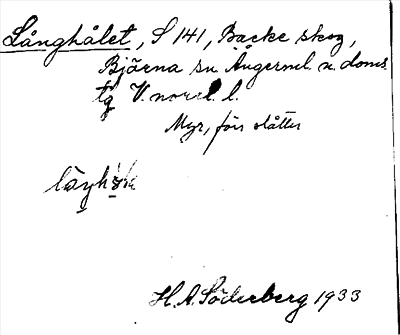 Långhålet, S 141, Backe skog,
Bjärna sn Ångerml. n. doms.
tg V. norrl. l.
Myr, förr slåtter
H. A. Söderberg 1933